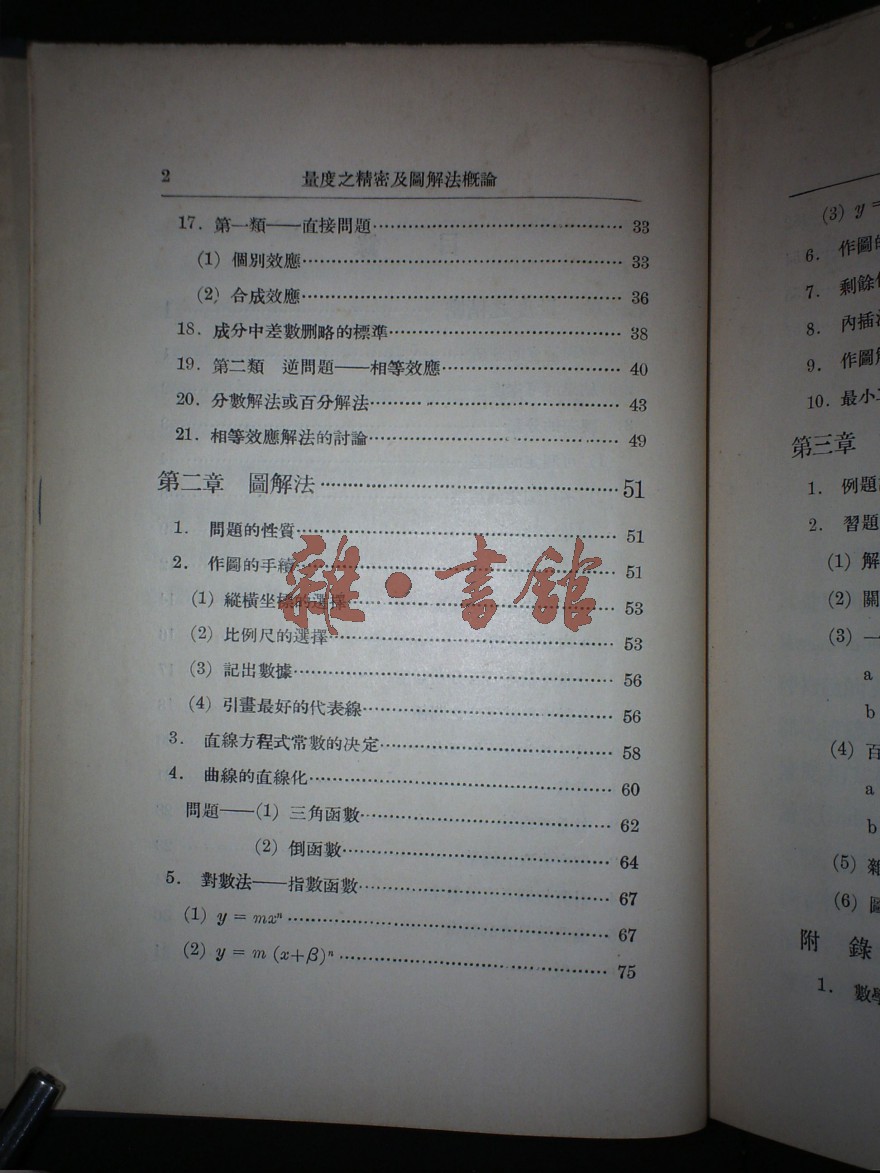 2 量度之精密及圖解法概論
17. 第一類——直接問題 33
(1) 個別效應 33
(2) 合成效應 36
18. 成分中差數删略的標準 38
19. 第二類 逆問題——相等效應 40
20. 分數解法或百分解法 43
21. 相等效應解法的討論 49
第二章 圖解法 51
1. 問題的性質 51
2. 作圖的手續 51
(1) 縱橫坐標的選擇 53
(2) 比例尺的選擇 53
(3) 記出數據 56
(4) 引畫最好的代表線 56
3. 直線方程式常數的决定 58
4. 曲線的直線化 60
問題——(1) 三角函數 62
(2) 倒函數 64
5. 對數法——指數函數 67
(1) y = mxⁿ 67
(2) y = m (x+β)ⁿ 75
雜·書館
(3) y =
6. 作圖
7. 剩餘
8. 內插
9. 作圖
10. 最小
第三章
1. 例題
2. 習題
(1) 解
(2) 關
(3) 一
a
b
(4) 百
a
b
(5) 雜
(6) 圖
附 錄
1. 數學